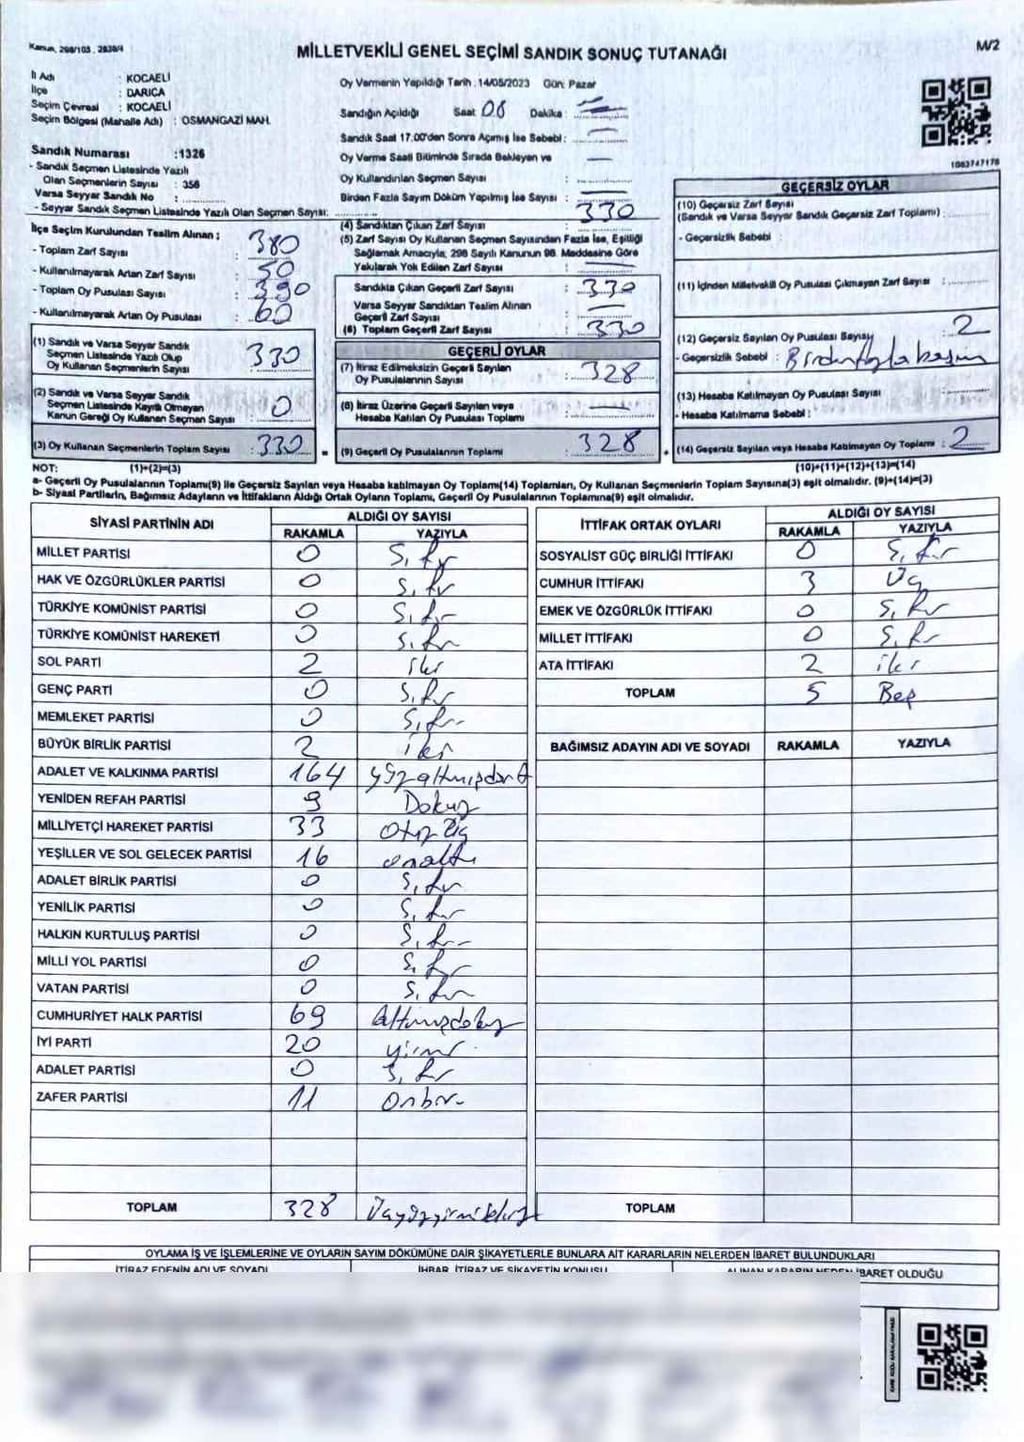 Kanun, 298/105 . 2839/4
MİLLETVEKİLİ GENEL SEÇİMİ SANDIK SONUÇ TUTANAĞI
M/2
İl Adı : KOCAELİ
İlçe : DARICA
Seçim Çevresi : KOCAELİ
Seçim Bölgesi (Mahalle Adı) : OSMANGAZİ MAH.
Sandık Numarası :1326
- Sandık Seçmen Listesinde Yazılı
Olan Seçmenlerin Sayısı : 356
Varsa Seyyar Sandık No :
- Seyyar Sandık Seçmen Listesinde Yazılı Olan Seçmen Sayısı:
İlçe Seçim Kurulundan Teslim Alınan ;
- Toplam Zarf Sayısı : 380
- Kullanılmayarak Artan Zarf Sayısı : 50
- Toplam Oy Pusulası Sayısı : 390
- Kullanılmayarak Artan Oy Pusulası : 60
(1) Sandık ve Varsa Seyyar Sandık
Seçmen Listesinde Yazılı Olup
Oy Kullanan Seçmenlerin Sayısı : 330
(2) Sandık ve Varsa Seyyar Sandık
Seçmen Listesinde Kayıtlı Olmayan
Kanun Gereği Oy Kullanan Seçmen Sayısı : 0
(3) Oy Kullanan Seçmenlerin Toplam Sayısı : 330
Oy Vermenin Yapıldığı Tarih :14/05/2023 Gün: Pazar
Sandığın Açıldığı Saat 08 Dakika :
Sandık Saat 17.00'den Sonra Açılmış İse Sebebi :
Oy Verme Saati Bitiminde Sırada Bekleyen ve
Oy Kullandırılan Seçmen Sayısı :
Birden Fazla Sayım Döküm Yapılmış İse Sayısı :
(4) Sandıktan Çıkan Zarf Sayısı : 330
(5) Zarf Sayısı Oy Kullanan Seçmen Sayısından Fazla İse, Eşitliği
Sağlamak Amacıyla, 298 Sayılı Kanunun 98. Maddesine Göre
Yakılarak Yok Edilen Zarf Sayısı :
Sandıkta Çıkan Geçerli Zarf Sayısı : 330
Varsa Seyyar Sandıktan Teslim Alınan
Geçerli Zarf Sayısı :
(6) Toplam Geçerli Zarf Sayısı : 330
GEÇERLİ OYLAR
(7) İtiraz Edilmeksizin Geçerli Sayılan
Oy Pusulalarının Sayısı : 328
(8) İtiraz Üzerine Geçerli Sayılan veya
Hesaba Katılan Oy Pusulası Toplamı :
= (9) Geçerli Oy Pusulalarının Toplamı : 328
1083747178
GEÇERSİZ OYLAR
(10) Geçersiz Zarf Sayısı
(Sandık ve Varsa Seyyar Sandık Geçersiz Zarf Toplamı) :
- Geçersizlik Sebebi :
(11) İçinden Milletvekili Oy Pusulası Çıkmayan Zarf Sayısı :
(12) Geçersiz Sayılan Oy Pusulası Sayısı : 2
- Geçersizlik Sebebi :
(13) Hesaba Katılmayan Oy Pusulası Sayısı
- Hesaba Katılmama Sebebi :
+ (14) Geçersiz Sayılan veya Hesaba Katılmayan Oy Toplamı : 2
NOT: (1)+(2)=(3) (10)+(11)+(12)+(13)=(14)
a- Geçerli Oy Pusulaların Toplamı(9) ile Geçersiz Sayılan veya Hesaba katılmayan Oy Toplamı(14) Toplamları, Oy Kullanan Seçmenlerin Toplam Sayısına(3) eşit olmalıdır. (9)+(14)=(3)
b- Siyasi Partilerin, Bağımsız Adayların ve İttifakların Aldığı Ortak Oyların Toplamı, Geçerli Oy Pusulalarının Toplamına(9) eşit olmalıdır.
SİYASİ PARTİNİN ADI ALDIĞI OY SAYISI
RAKAMLA YAZIYLA
MİLLET PARTİSİ 0 Sıfır
HAK VE ÖZGÜRLÜKLER PARTİSİ 0 Sıfır
TÜRKİYE KOMÜNİST PARTİSİ 0 Sıfır
TÜRKİYE KOMÜNİST HAREKETİ 0 Sıfır
SOL PARTİ 2 iki
GENÇ PARTİ 0 Sıfır
MEMLEKET PARTİSİ 0 Sıfır
BÜYÜK BİRLİK PARTİSİ 2 iki
ADALET VE KALKINMA PARTİSİ 164 yüzaltmışdört
YENİDEN REFAH PARTİSİ 9 Dokuz
MİLLİYETÇİ HAREKET PARTİSİ 33 otuz üç
YEŞİLLER VE SOL GELECEK PARTİSİ 16 onaltı
ADALET BİRLİK PARTİSİ 0 Sıfır
YENİLİK PARTİSİ 0 Sıfır
HALKIN KURTULUŞ PARTİSİ 0 Sıfır
MİLLİ YOL PARTİSİ 0 Sıfır
VATAN PARTİSİ 0 Sıfır
CUMHURİYET HALK PARTİSİ 69 altmışdokuz
İYİ PARTİ 20 yirmi
ADALET PARTİSİ 0 Sıfır
ZAFER PARTİSİ 11 Onbir
TOPLAM 328 Üçyüzyirmisekiz
İTTİFAK ORTAK OYLARI ALDIĞI OY SAYISI
RAKAMLA YAZIYLA
SOSYALİST GÜÇ BİRLİĞİ İTTİFAKI 0 Sıfır
CUMHUR İTTİFAKI 3 Üç
EMEK VE ÖZGÜRLÜK İTTİFAKI 0 Sıfır
MİLLET İTTİFAKI 0 Sıfır
ATA İTTİFAKI 2 iki
TOPLAM 5 Beş
BAĞIMSIZ ADAYIN ADI VE SOYADI RAKAMLA YAZIYLA
TOPLAM
OYLAMA İŞ VE İŞLEMLERİNE VE OYLARIN SAYIM DÖKÜMÜNE DAİR ŞİKAYETLERLE BUNLARA AİT KARARLARIN NELERDEN İBARET BULUNDUKLARI
İTİRAZ EDENİN ADI VE SOYADI İHBAR, İTİRAZ VE ŞİKAYETİN KONUSU ALINAN KARARIN NEDEN İBARET OLDUĞU